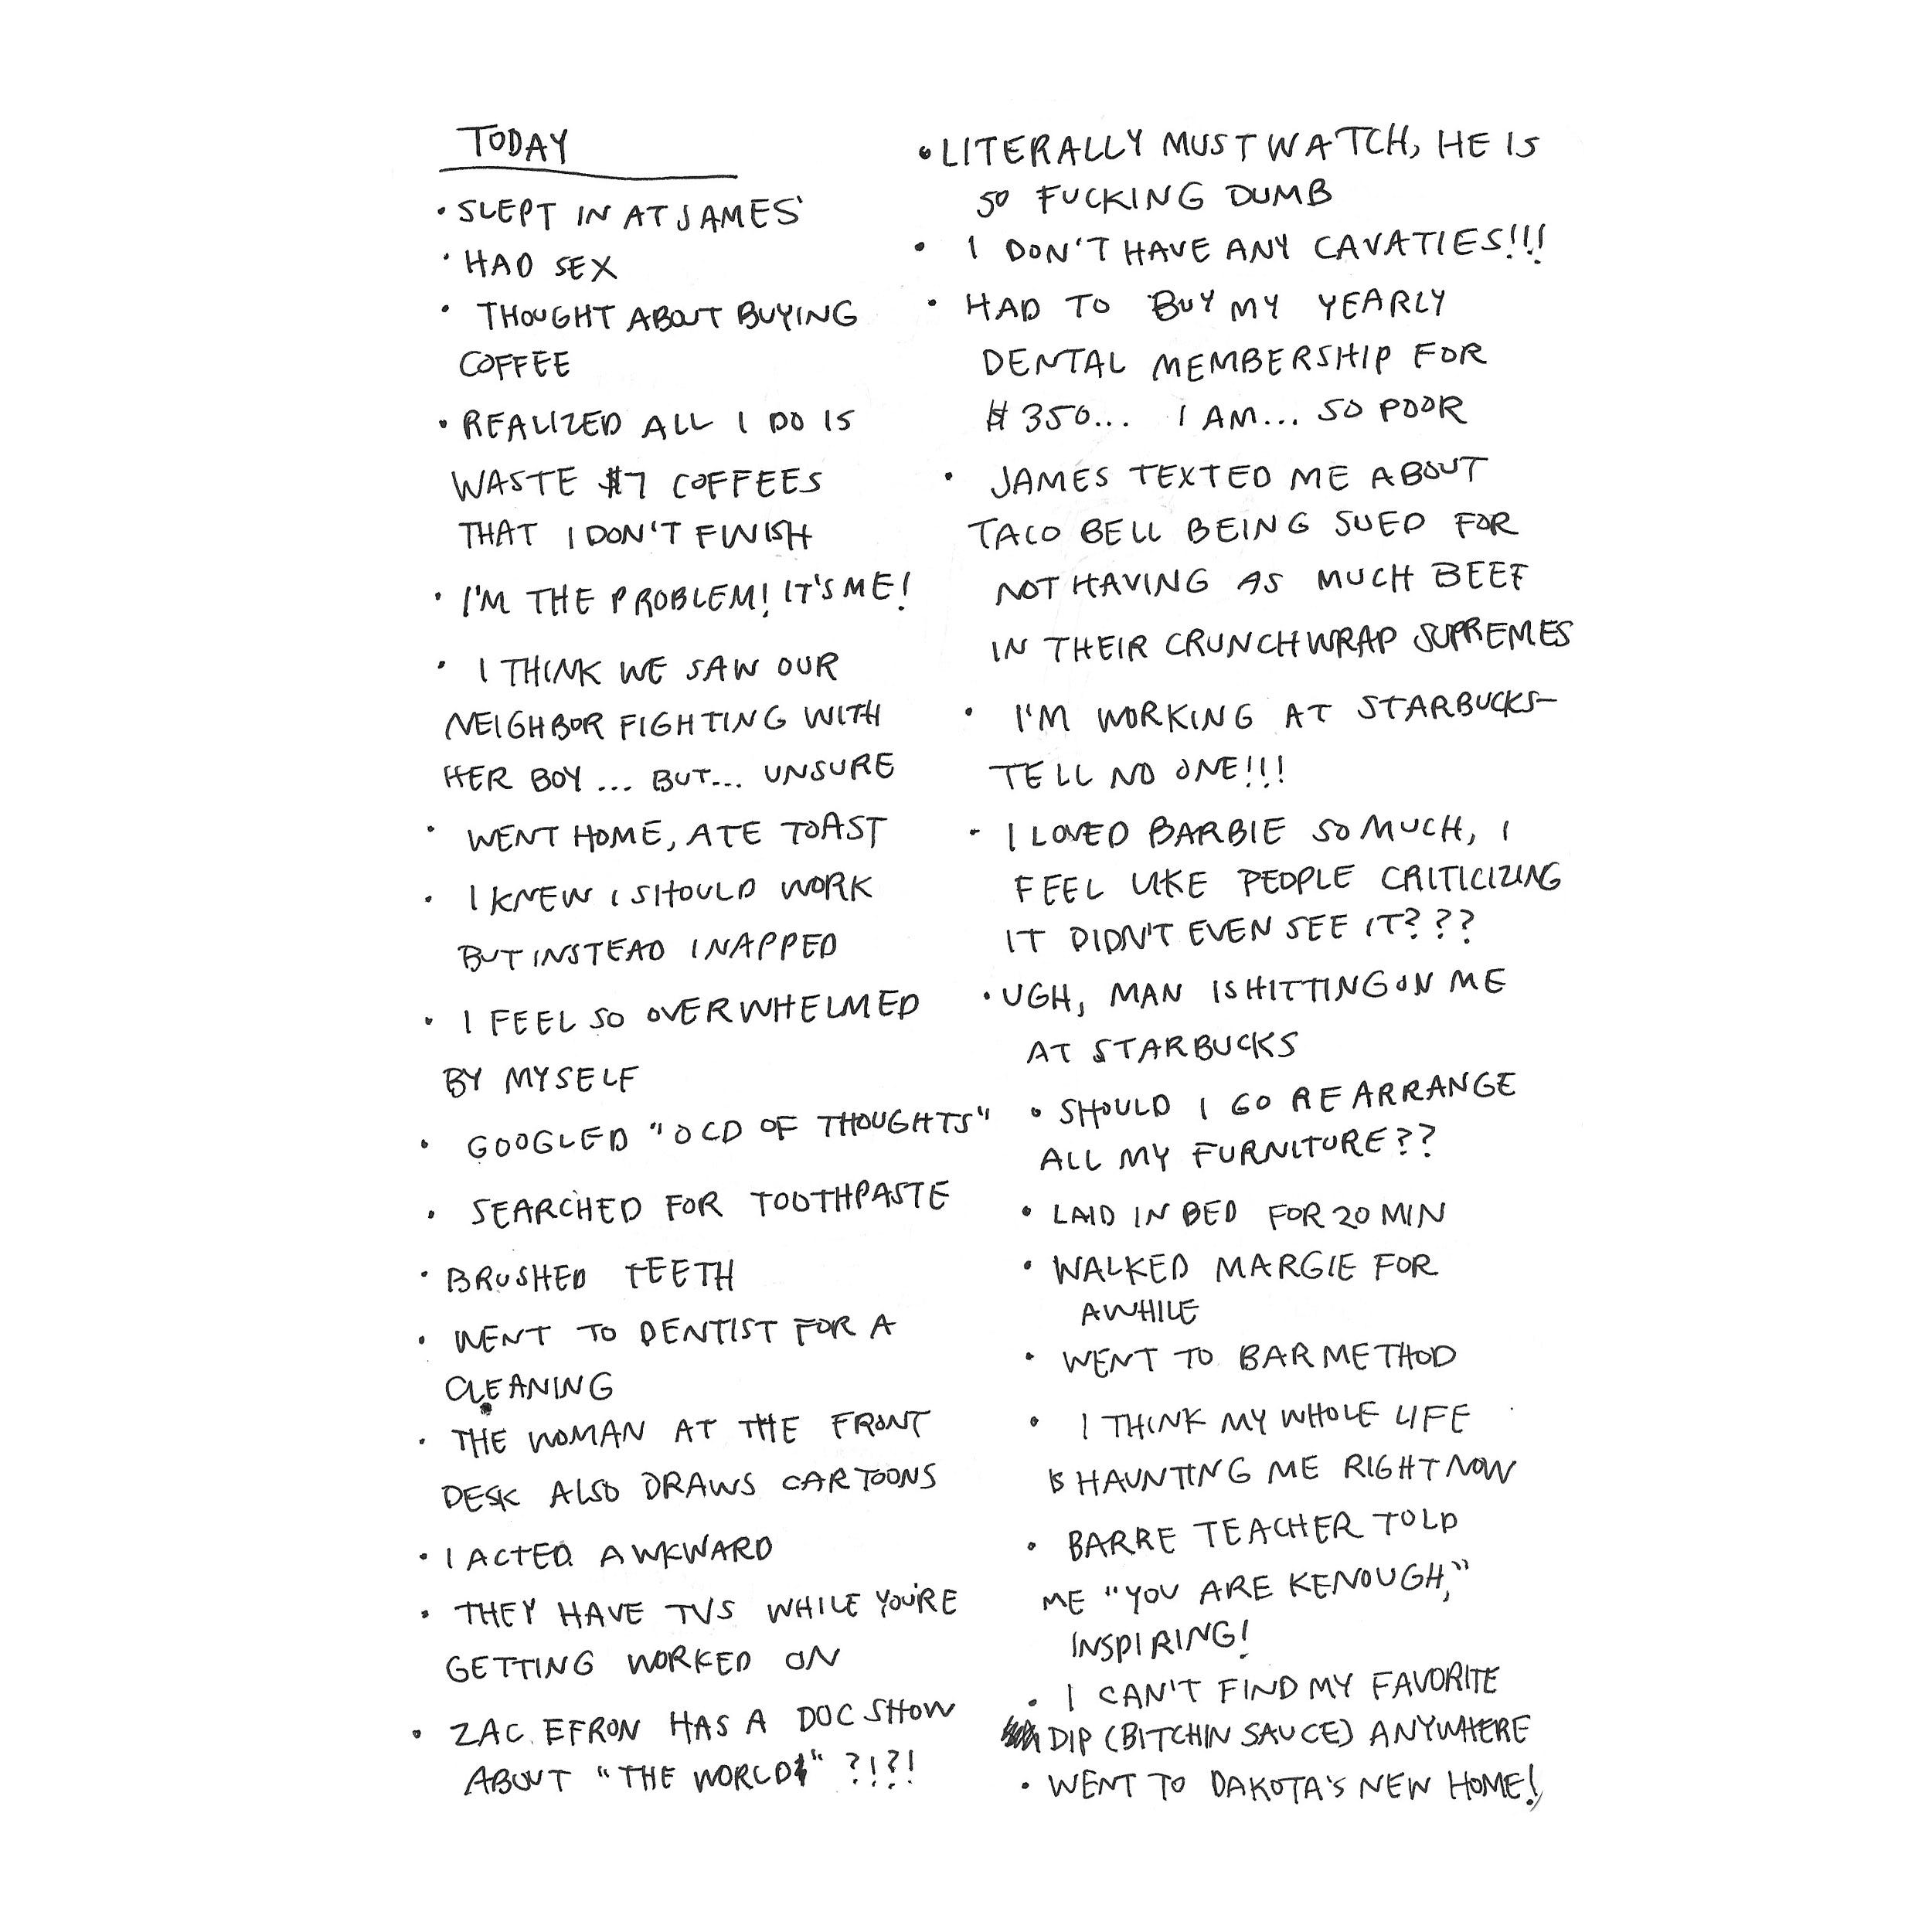 TODAY
• SLEPT IN AT JAMES'
• HAD SEX
• THOUGHT ABOUT BUYING
COFFEE
• REALIZED ALL I DO IS
WASTE $7 COFFEES
THAT I DON'T FINISH
• I'M THE PROBLEM! IT'S ME!
• I THINK WE SAW OUR
NEIGHBOR FIGHTING WITH
HER BOY ... BUT... UNSURE
• WENT HOME, ATE TOAST
• I KNEW I SHOULD WORK
BUT INSTEAD I NAPPED
• I FEEL SO OVERWHELMED
BY MYSELF
• GOOGLED "OCD OF THOUGHTS"
• SEARCHED FOR TOOTHPASTE
• BRUSHED TEETH
• WENT TO DENTIST FOR A
CLEANING
• THE WOMAN AT THE FRONT
DESK ALSO DRAWS CARTOONS
• I ACTED AWKWARD
• THEY HAVE TVS WHILE YOU'RE
GETTING WORKED ON
• ZAC EFRON HAS A DOC SHOW
ABOUT "THE WORLD" ?!?!
• LITERALLY MUST WATCH, HE IS
SO FUCKING DUMB
• I DON'T HAVE ANY CAVATIES!!!
• HAD TO BUY MY YEARLY
DENTAL MEMBERSHIP FOR
$350... I AM... SO POOR
• JAMES TEXTED ME ABOUT
TACO BELL BEING SUED FOR
NOT HAVING AS MUCH BEEF
IN THEIR CRUNCHWRAP SUPREMES
• I'M WORKING AT STARBUCKS—
TELL NO ONE!!!
• I LOVED BARBIE SO MUCH, I
FEEL LIKE PEOPLE CRITICIZING
IT DIDN'T EVEN SEE IT???
• UGH, MAN IS HITTING ON ME
AT STARBUCKS
• SHOULD I GO REARRANGE
ALL MY FURNITURE??
• LAID IN BED FOR 20 MIN
• WALKED MARGIE FOR
AWHILE
• WENT TO BAR METHOD
• I THINK MY WHOLE LIFE
IS HAUNTING ME RIGHT NOW
• BARRE TEACHER TOLD
ME "YOU ARE KENOUGH,"
INSPIRING!
• I CAN'T FIND MY FAVORITE
DIP (BITCHIN SAUCE) ANYWHERE
• WENT TO DAKOTA'S NEW HOME!